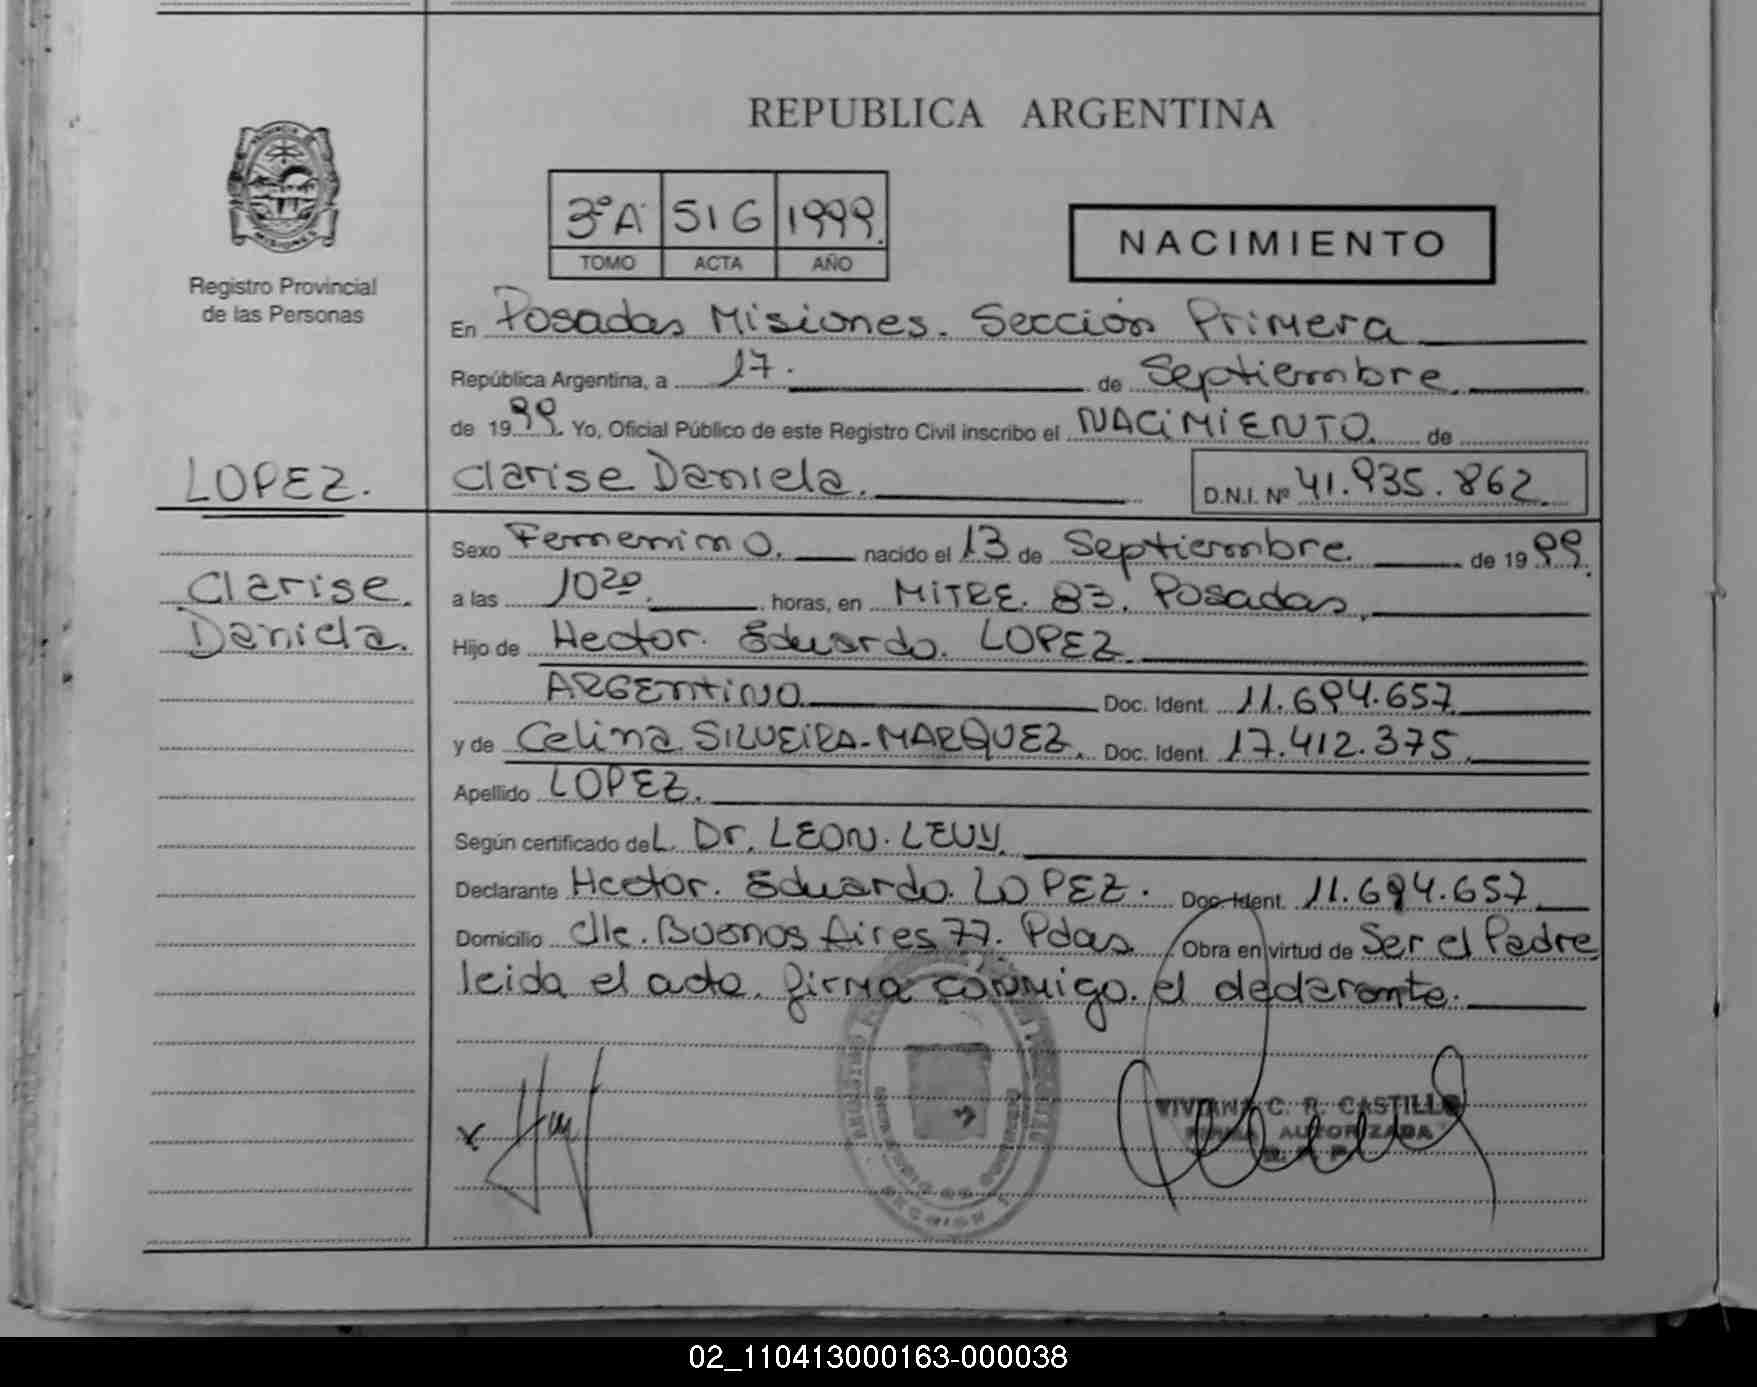 REPUBLICA ARGENTINA
3º A 516 1999.
TOMO ACTA AÑO
NACIMIENTO
PROVINCIA
MISIONES
Registro Provincial
de las Personas
En Posadas Misiones. Sección Primera
República Argentina, a 17. de Septiembre.
de 1999. Yo, Oficial Público de este Registro Civil inscribo el NACIMIENTO. de
LOPEZ.
Clarise Daniela. D.N.I. Nº 41.935.862
Sexo Femenino. nacido el 13 de Septiembre. de 1999.
Clarise.
Daniela.
a las 10 20. horas, en MITRE. 83. Posadas.
Hijo de Hector. Eduardo. LOPEZ
ARGENTINO Doc. Ident. 11.694.657
y de Celina SILVEIRA-MARQUEZ. Doc. Ident. 17.412.375.
Apellido LOPEZ.
Según certificado del. Dr. LEON. LEVY.
Declarante Hector. Eduardo. LOPEZ. Doc. Ident. 11.694.657
Domicilio Clle. Buenos Aires 77. Pdas. Obra en virtud de Ser el Padre
leida el acta. firma conmigo. el declarante.
VIVIANA C. R. CASTILLO
FIRMA AUTORIZADA
02_110413000163-000038